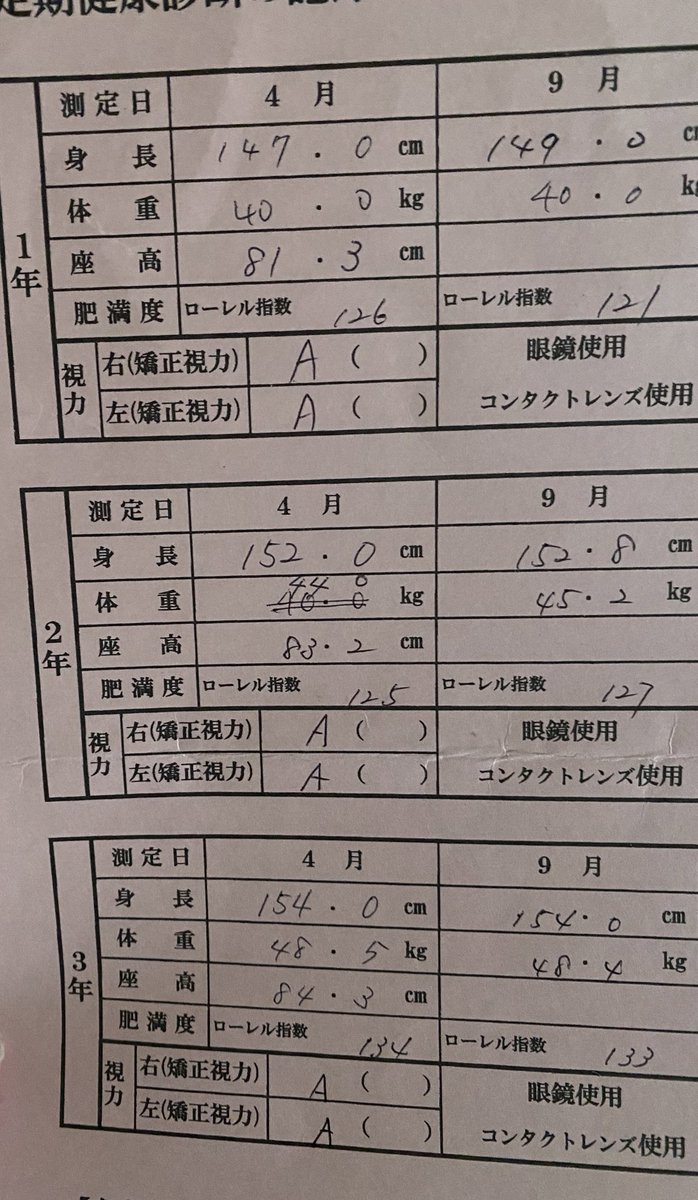 定期健康診断の記
1年
測定日 4月 9月
身長 147.0 cm 149.0 c
体重 40.0 kg 40.0 kg
座高 81.3 cm
肥満度 ローレル指数 126 ローレル指数 121
視力 右(矯正視力) A ( ) 眼鏡使用
左(矯正視力) A ( ) コンタクトレンズ使用
2年
測定日 4月 9月
身長 152.0 cm 152.8 cm
44 0
体重 40.0 kg 45.2 kg
座高 83.2 cm
肥満度 ローレル指数 125 ローレル指数 127
視力 右(矯正視力) A ( ) 眼鏡使用
左(矯正視力) A ( ) コンタクトレンズ使用
3年
測定日 4月 9月
身長 154.0 cm 154.0 cm
体重 48.5 kg 48.4 kg
座高 84.3 cm
肥満度 ローレル指数 134 ローレル指数 133
視力 右(矯正視力) A ( ) 眼鏡使用
左(矯正視力) A ( ) コンタクトレンズ使用